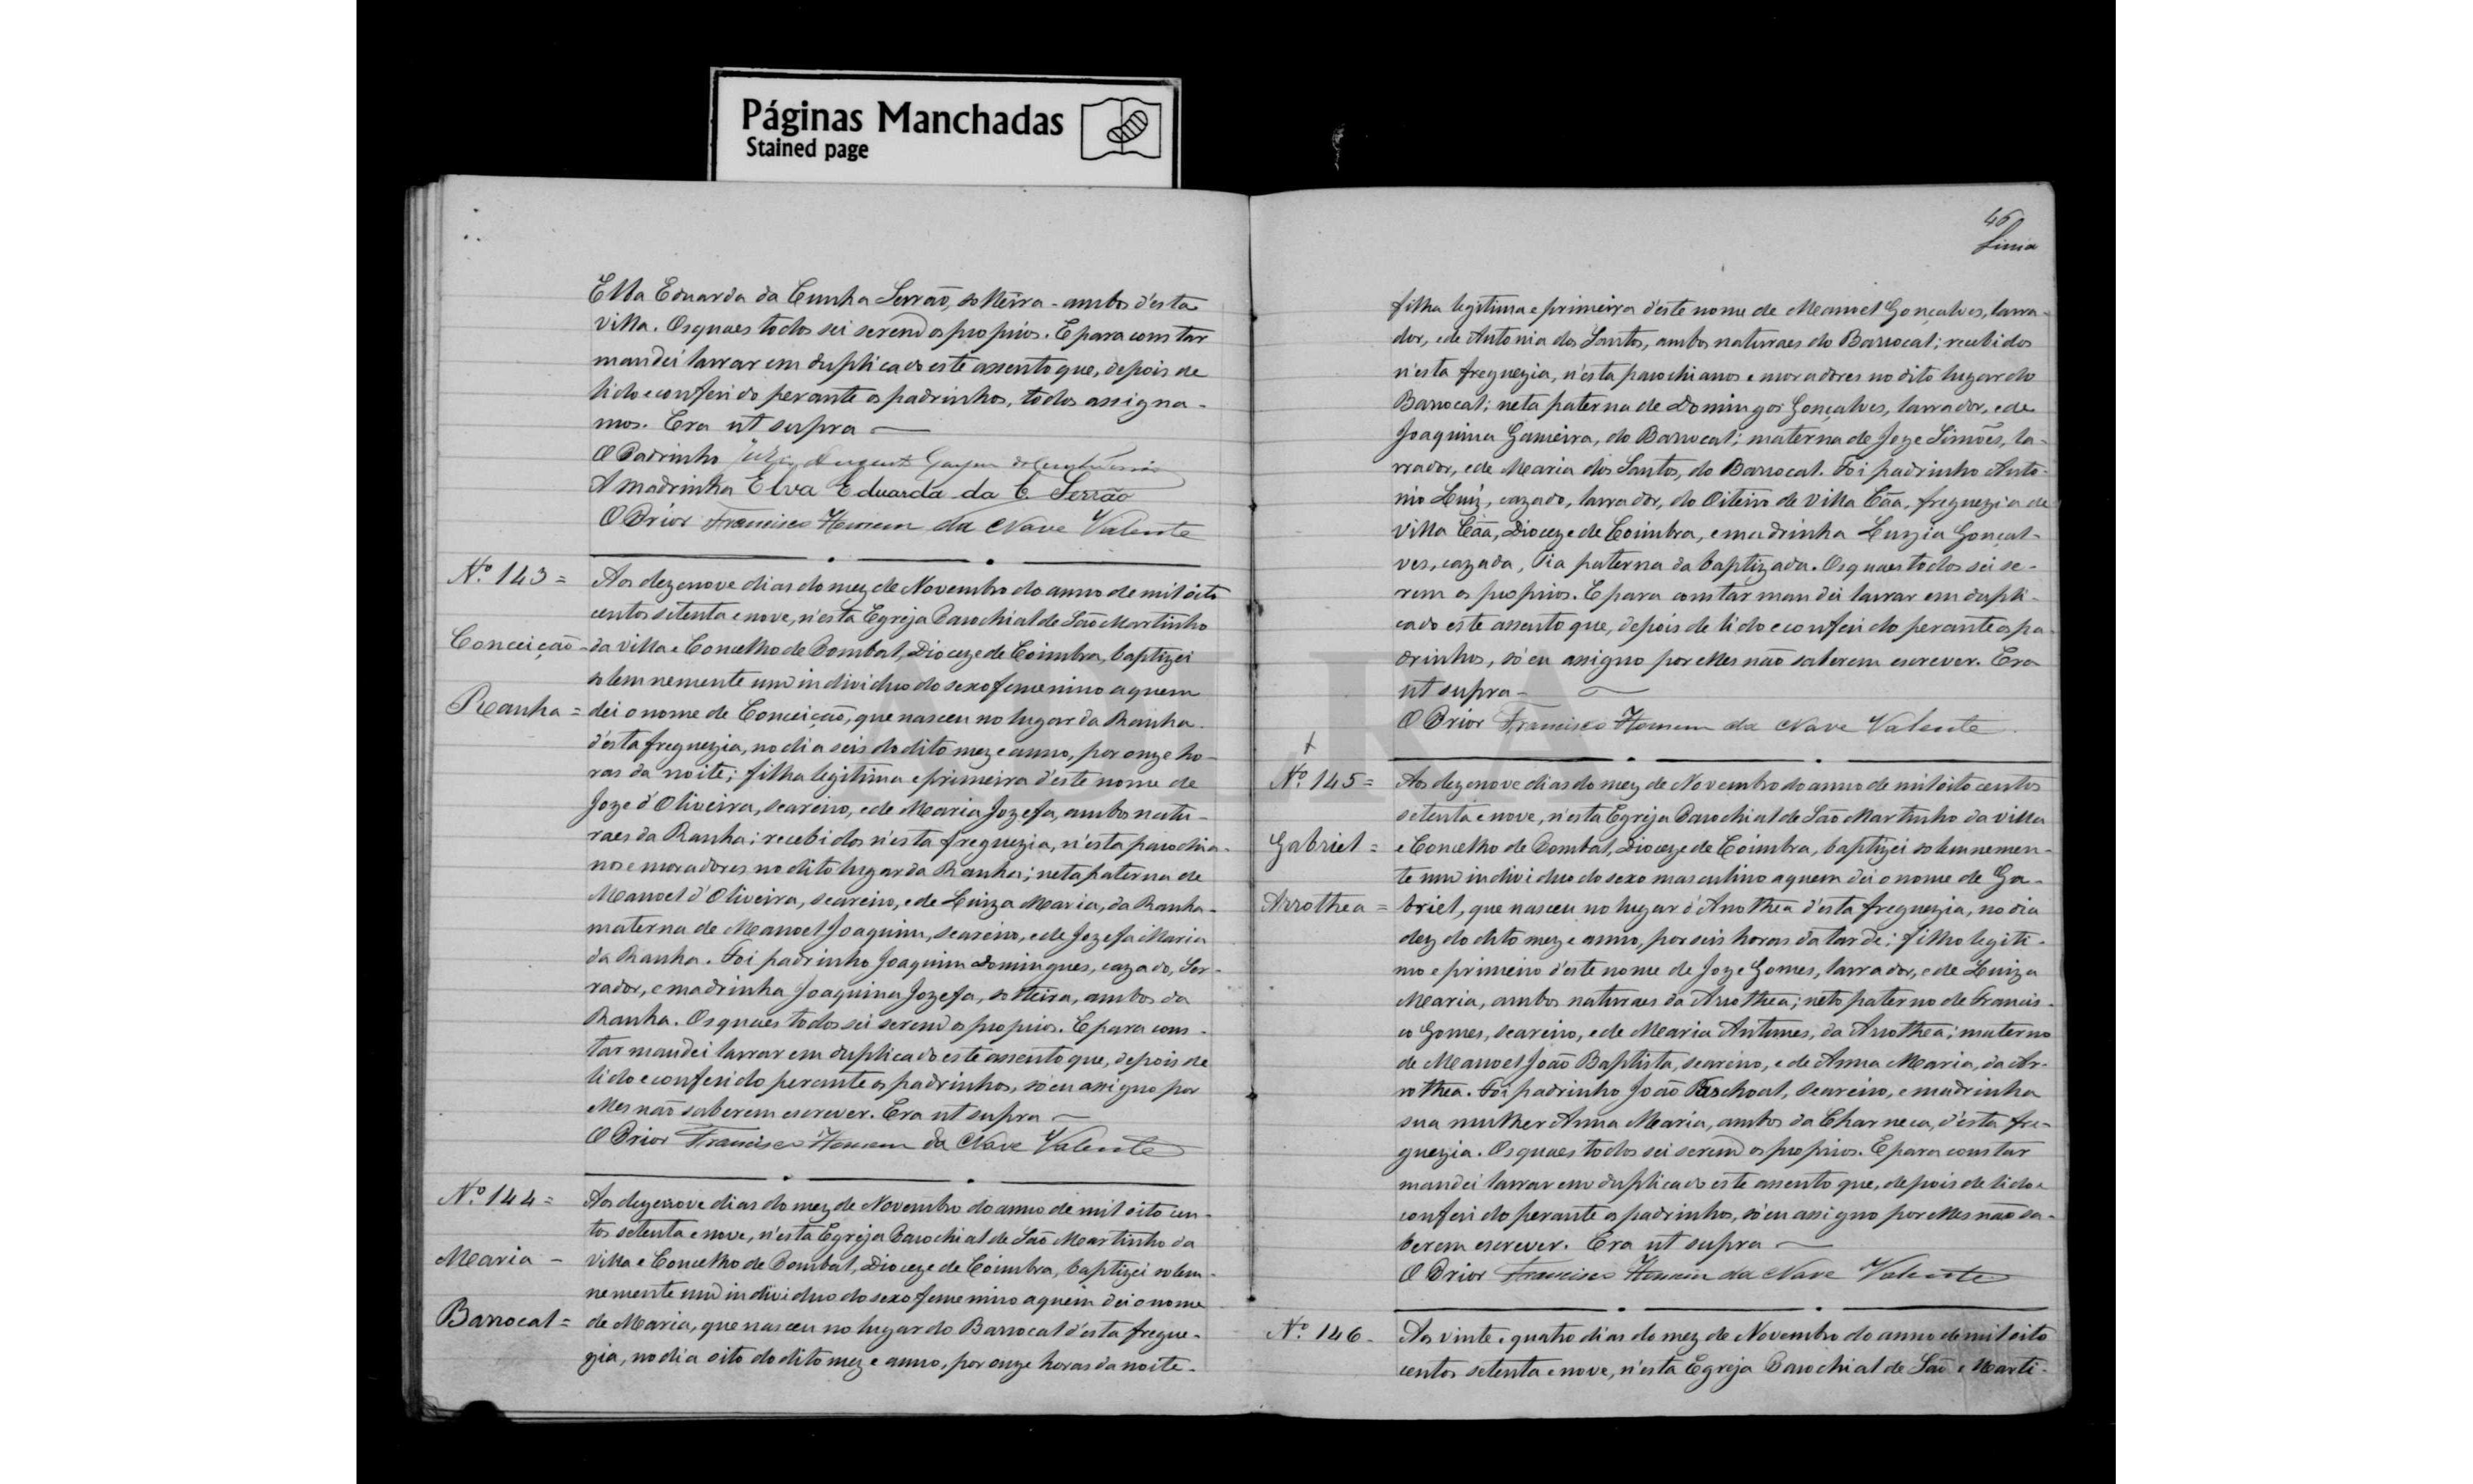 Páginas Manchadas
Stained page
Ella Eduarda da Cunha Serrão, solteira - ambos d'esta
villa. Os quaes todos sei serem os proprios. E para constar
mandei lavrar em duplicado este assento que, depois de
lido e conferido perante os padrinhos, todos assigna-
mos. Era ut supra —
O Padrinho
A madrinha Elva Eduarda da C. Serrão
O Prior Francisco Homem da Nave Valente
N.º 143 =
Conceição -
Ranha =
Aos dezenove dias do mez de Novembro do anno de mil oito
centos setenta e nove, n'esta Egreja Parochial de São Martinho
da villa e Concelho de Pombal, Dioceze de Coimbra, baptizei
solemnemente um individuo do sexo femenino a quem
dei o nome de Conceição, que nasceu no lugar da Ranha
d'esta freguezia, no dia seis do dito mez e anno, por onze ho-
ras da noite; filha legitima e primeira d'este nome de
Joze d'Oliveira, seareiro, e de Maria Jozefa, ambos natu-
raes da Ranha; recebidos n'esta freguezia, n'esta parochia-
nos e moradores no dito lugar da Ranha; neta paterna de
Manoel d'Oliveira, seareiro, e de Luiza Maria, da Ranha -
materna de Manoel Joaquim, seareiro, e de Jozefa Maria
da Ranha. Foi padrinho Joaquim Domingues, cazado, Ser-
rador, e madrinha Joaquina Jozefa, solteira, ambos da
Ranha. Os quaes todos sei serem os proprios. E para cons-
tar mandei lavrar em duplicado este assento que, depois de
lido e conferido perante os padrinhos, só eu assigno por
elles não saberem escrever. Era ut supra —
O Prior Francisco Homem da Nave Valente
N.º 144 =
Maria -
Barrocal =
Aos dezenove dias do mez de Novembro do anno de mil oito cen-
tos setenta e nove, n'esta Egreja Parochial de São Martinho da
villa e Concelho de Pombal, Dioceze de Coimbra, baptizei solem-
nemente um individuo do sexo femenino a quem dei o nome
de Maria, que nasceu no lugar do Barrocal d'esta fregue-
zia, no dia oito do dito mez e anno, por onze horas da noite -
46
filha legitima e primeira d'este nome de Manoel Gonçalves, lavra-
dor, e de Antonia dos Santos, ambos naturaes do Barrocal; recebidos
n'esta freguezia, n'esta parochianos e moradores no dito lugar do
Barrocal; neta paterna de Domingos Gonçalves, lavrador, e de
Joaquina Gameira, do Barrocal; materna de Joze Simões, la-
vrador, e de Maria dos Santos, do Barrocal. Foi padrinho Anto-
nio Luiz, cazado, lavrador, do Oiteiro de Villa Cãa, freguezia de
Villa Cãa, Dioceze de Coimbra, e madrinha Luzia Gonçal-
ves, cazada, Tia paterna da baptizada. Os quaes todos sei se-
rem os proprios. E para constar mandei lavrar em dupli-
cado este assento que, depois de lido e conferido perante os pa-
drinhos, só eu assigno por elles não saberem escrever. Era
ut supra -
O Prior Francisco Homem da Nave Valente
N.º 145 =
Gabriel =
Arrothea =
Aos dezenove dias do mez de Novembro do anno de mil oito centos
setenta e nove, n'esta Egreja Parochial de São Martinho da villa
e Concelho de Pombal, Dioceze de Coimbra, baptizei solemnemen-
te um individuo do sexo masculino a quem dei o nome de Ga-
briel, que nasceu no lugar d'Arrothea d'esta freguezia, no dia
dez do dito mez e anno, por seis horas da tarde; filho legiti-
mo e primeiro d'este nome de Joze Gomes, lavrador, e de Luiza
Maria, ambos naturaes da Arrothea; neto paterno de Francis-
co Gomes, seareiro, e de Maria Antunes, da Arrothea; materno
de Manoel João Baptista, seareiro, e de Anna Maria, da Ar-
rothea. Foi padrinho João Paschoal, seareiro, e madrinha
sua mulher Anna Maria, ambos da Charneca, d'esta fre-
guezia. Os quaes todos sei serem os proprios. E para constar
mandei lavrar em duplicado este assento que, depois de lido e
conferido perante os padrinhos, só eu assigno por elles não sa-
berem escrever. Era ut supra —
O Prior Francisco Homem da Nave Valente
N.º 146 -
Aos vinte e quatro dias do mez de Novembro do anno de mil oito
centos setenta e nove, n'esta Egreja Parochial de São Marti-